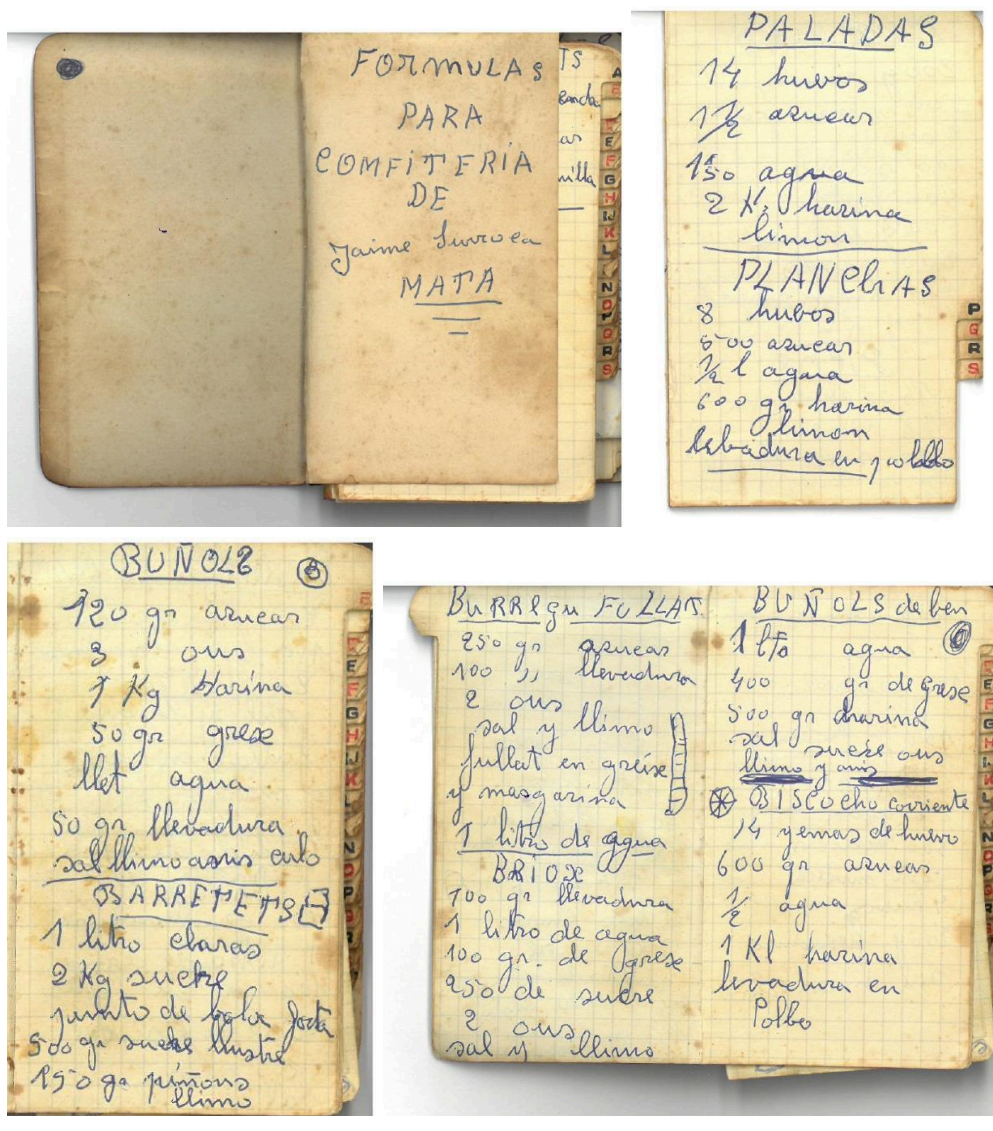 FORMULAS
PARA
COMFiTERiA
DE
Jaime Surroca
MATA
TS
A
E
F
G
H
IJ
K
L
N
O
P
Q
R
S
PALADAS
14 huvos
1 1/2 azucar
150 agua
2 K. harina
limon
PLANChAS
8 hubos
500 azucar
1/2 l agua
600 gr harina
limon
lebadura en
P
Q
R
S
BUÑOLS
120 gr azucar
3 ous
1 Kg Harina
50 gr grexe
llet agua
50 gr llevadura
sal llimo
BARRETETS
1 litro claras
2 Kg sucre
punto de bola
500 gr sucre llustre
150 gr piñons
llimo
E
F
G
H
IJ
K
L
N
O
P
BURREGU FULLAT
250 gr azucar
100 ,, llevadura
2 ous
sal y llimo
fullat en greixe
y masgarina
1 litro de agua
BRIOX
100 gr llevadura
1 litro de agua
100 gr. de grexe
250 de sucre
2 ous
sal y llimo
BUÑOLS de ben
1 agua
400 gr de grese
500 gr harina
sal sucre ous
llimo y anis
BISCOcho corriente
14 yemas de huevo
600 gr azucar
1/2 agua
1 Kl harina
levadura en
Polbo